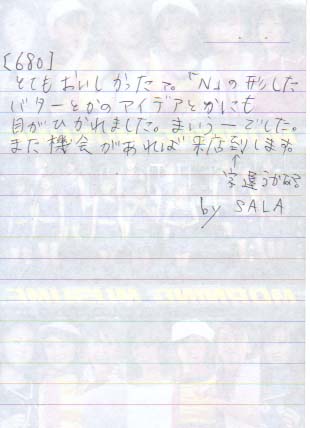 [680]
とてもおいしかったっス。「N」の形した
バターとかのアイデアとかにも
目がひかれました。まいうーでした。
また機会があれば来店到します。
↑
字違うかなぁ
by SALA
MORNING MUSUME